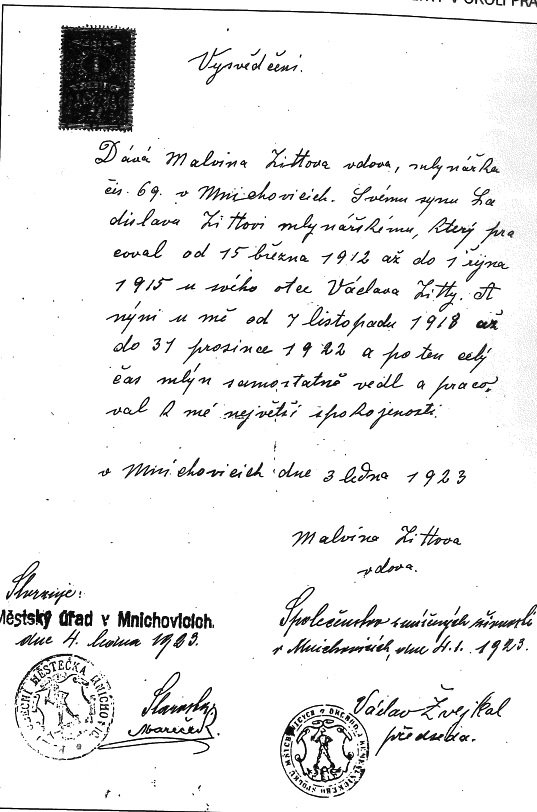 V OKOLÍ PRA
Vysvědčení.
Dává Malvina Zittova vdova, mlynářka
čis. 69. v Mnichovicích. Svému synu La
dislavu Zittovi mlynářskému, který pra
coval od 15 března 1912 až do 1 října
1915 u svého otce Václava Zitty. A
nýni u mě od 7 listopadu 1918 až
do 31 prosince 1922 a po ten celý
čas mlýn samostatně vedl a praco,
val k mé největší spokojenosti.
v Mnichovicích dne 3 ledna 1923
Malvina Zittova
vdova.
Stvrzuje:
Městský úřad v Mnichovicích.
dne 4. ledna 1923.
Společenstvo smíšených živností
v Mnichovicích, dne 4.1. 1923.
MĚSTEČKA MNICHOVIC
Starosta
Mareček
Václav Žvejkal
předseda.